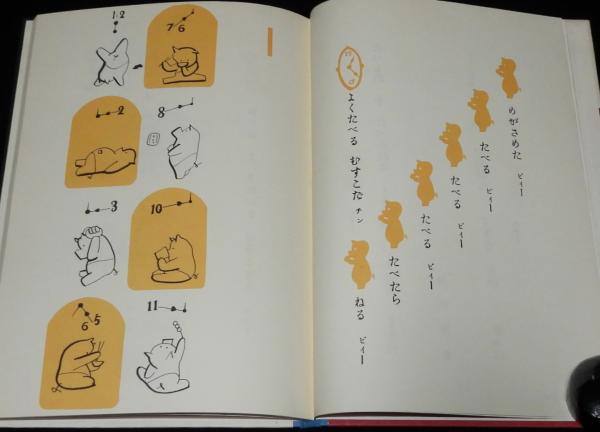 めがさめた ピィー
たべる ピィー
たべる ピィー
たべる ピィー
たべたら
ねる ピィー
よくたべる むすこだ チン
7 6
8
10
11
12
2
3
6 5